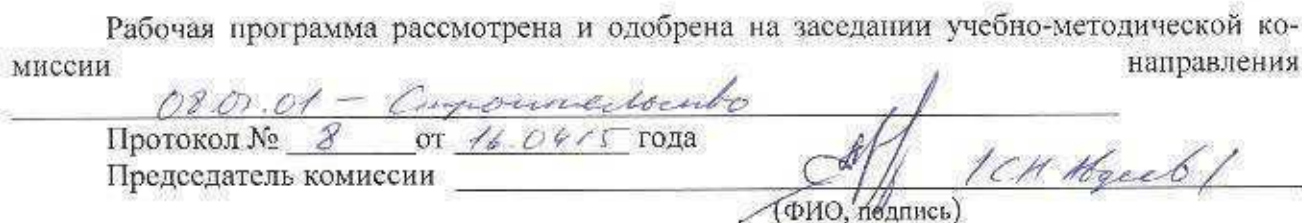 Рабочая программа рассмотрена и одобрена на заседании учебно-методической ко-
миссии направления
08.03.01 – Строительство
Протокол № 8 от 16.04.15 года
Председатель комиссии /С.Н. /
(ФИО, подпись)